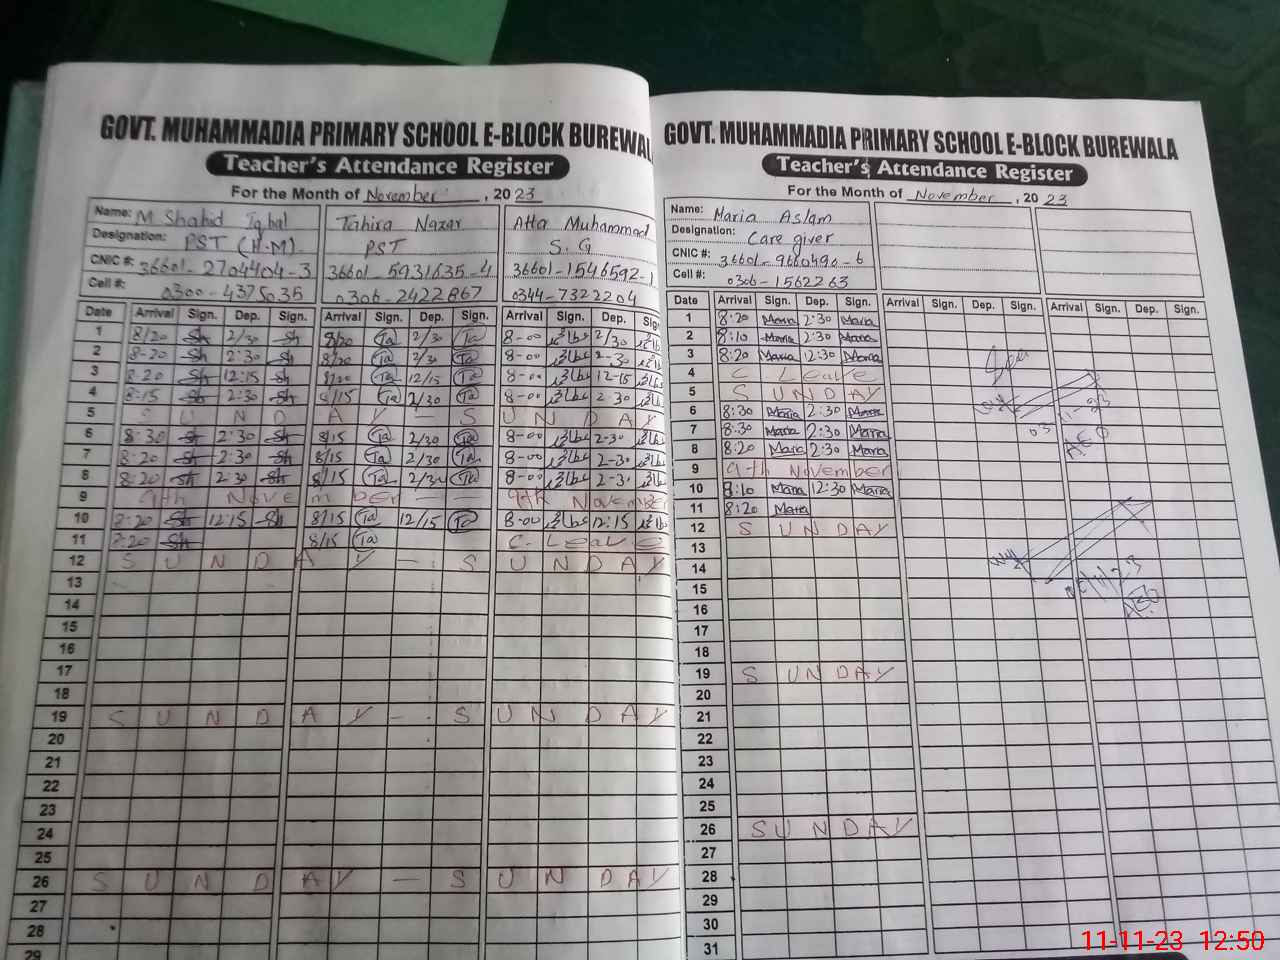 GOVT. MUHAMMADIA PRIMARY SCHOOL E-BLOCK BUREWAL
Teacher's Attendance Register
For the Month of November, 2023
Name: M Shahid Iqbal Tahira Nazar Atta Muhammad
Designation: PST (H.M) PST S.G
CNIC #: 36601-2704404-3 36601-5931635-4 36601-1546592-1
Cell #: 0300-4375035 0306-2422867 0344-7322204
Date Arrival Sign. Dep. Sign. Arrival Sign. Dep. Sign. Arrival Sign. Dep. Sign
1 8/20 Sh 2/30 Sh 8/20 Ta 2/30 Ta 8-00 2/30
2 8-20 Sh 2:30 Sh 8/20 Ta 2/30 Ta 8-00 2-30
3 8.20 Sh 12:15 Sh 8/20 Ta 12/15 Ta 8-00 12-15
4 8-15 Sh 2:30 Sh 8/15 Ta 2/30 Ta 8-00 2-30
5 SUNDAY — SUNDAY
6 8:30 Sh 2:30 Sh 8/15 Ta 2/30 Ta 8-00 2-30
7 8:20 Sh 2:30 Sh 8/15 Ta 2/30 Ta 8-00 2-30
8 8:20 Sh 2:30 Sh 8/15 Ta 2/30 Ta 8-00 2-30
9 9th November — — 9th November
10 8:20 Sh 12:15 Sh 8/15 Ta 12/15 Ta 8-00 12:15
11 8:20 Sh 8/15 Ta C. Leave
12 SUNDAY — SUNDAY
13
14
15
16
17
18
19 SUNDAY — SUNDAY
20
21
22
23
24
25
26 SUNDAY — SUNDAY
27
28
29
GOVT. MUHAMMADIA PRIMARY SCHOOL E-BLOCK BUREWALA
Teacher's Attendance Register
For the Month of November, 2023
Name: Maria Aslam
Designation: Care giver
CNIC #: 36601-9660490-6
Cell #: 0306-1562263
Date Arrival Sign. Dep. Sign. Arrival Sign. Dep. Sign. Arrival Sign. Dep. Sign.
1 8:20 Maria 2:30 Maria
2 8:10 Maria 2:30 Maria
3 8:20 Maria 12:30 Maria
4 C Leave
5 SUNDAY
6 8:30 Maria 2:30 Maria
7 8:30 Maria 2:30 Maria
8 8:20 Maria 2:30 Maria
9 9th November
10 8:10 Maria 12:30 Maria
11 8:20 Maria
12 SUNDAY
13
14
15
16
17
18
19 SUNDAY
20
21
22
23
24
25
26 SUNDAY
27
28
29
30
31
03-11-23
AEO
AEO
11-11-23 12:50